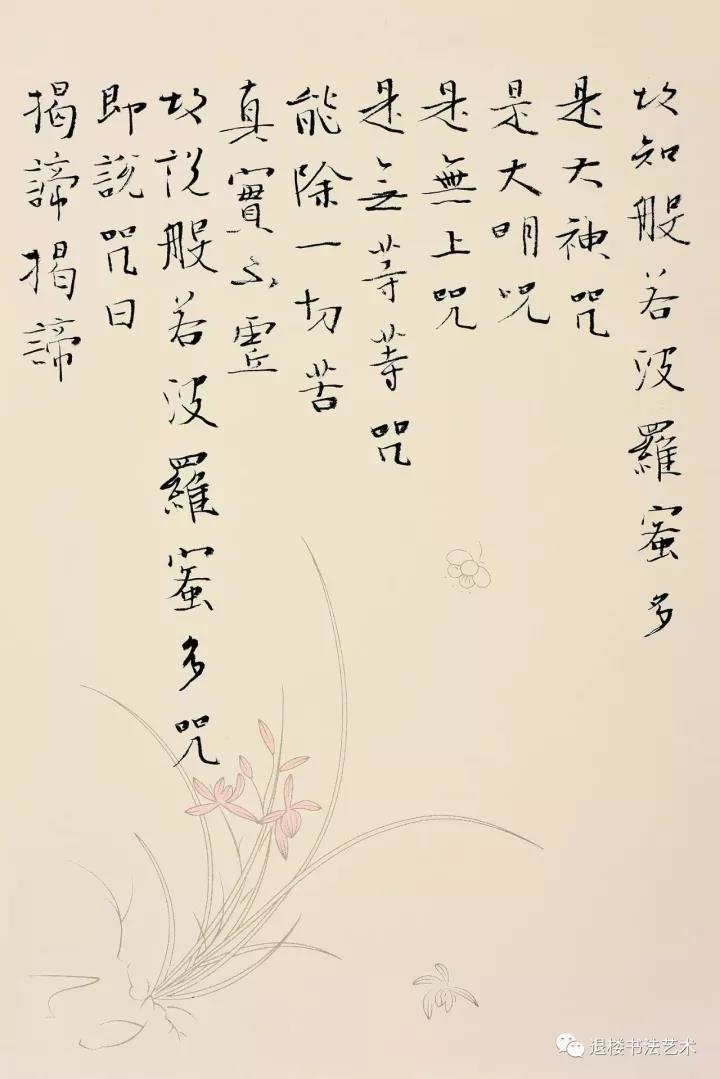 故知般若波羅蜜多
是大神咒
是大明咒
是無上咒
是無等等咒
能除一切苦
真實不虛
故說般若波羅蜜多咒
即說咒曰
揭諦揭諦
退楼书法艺术